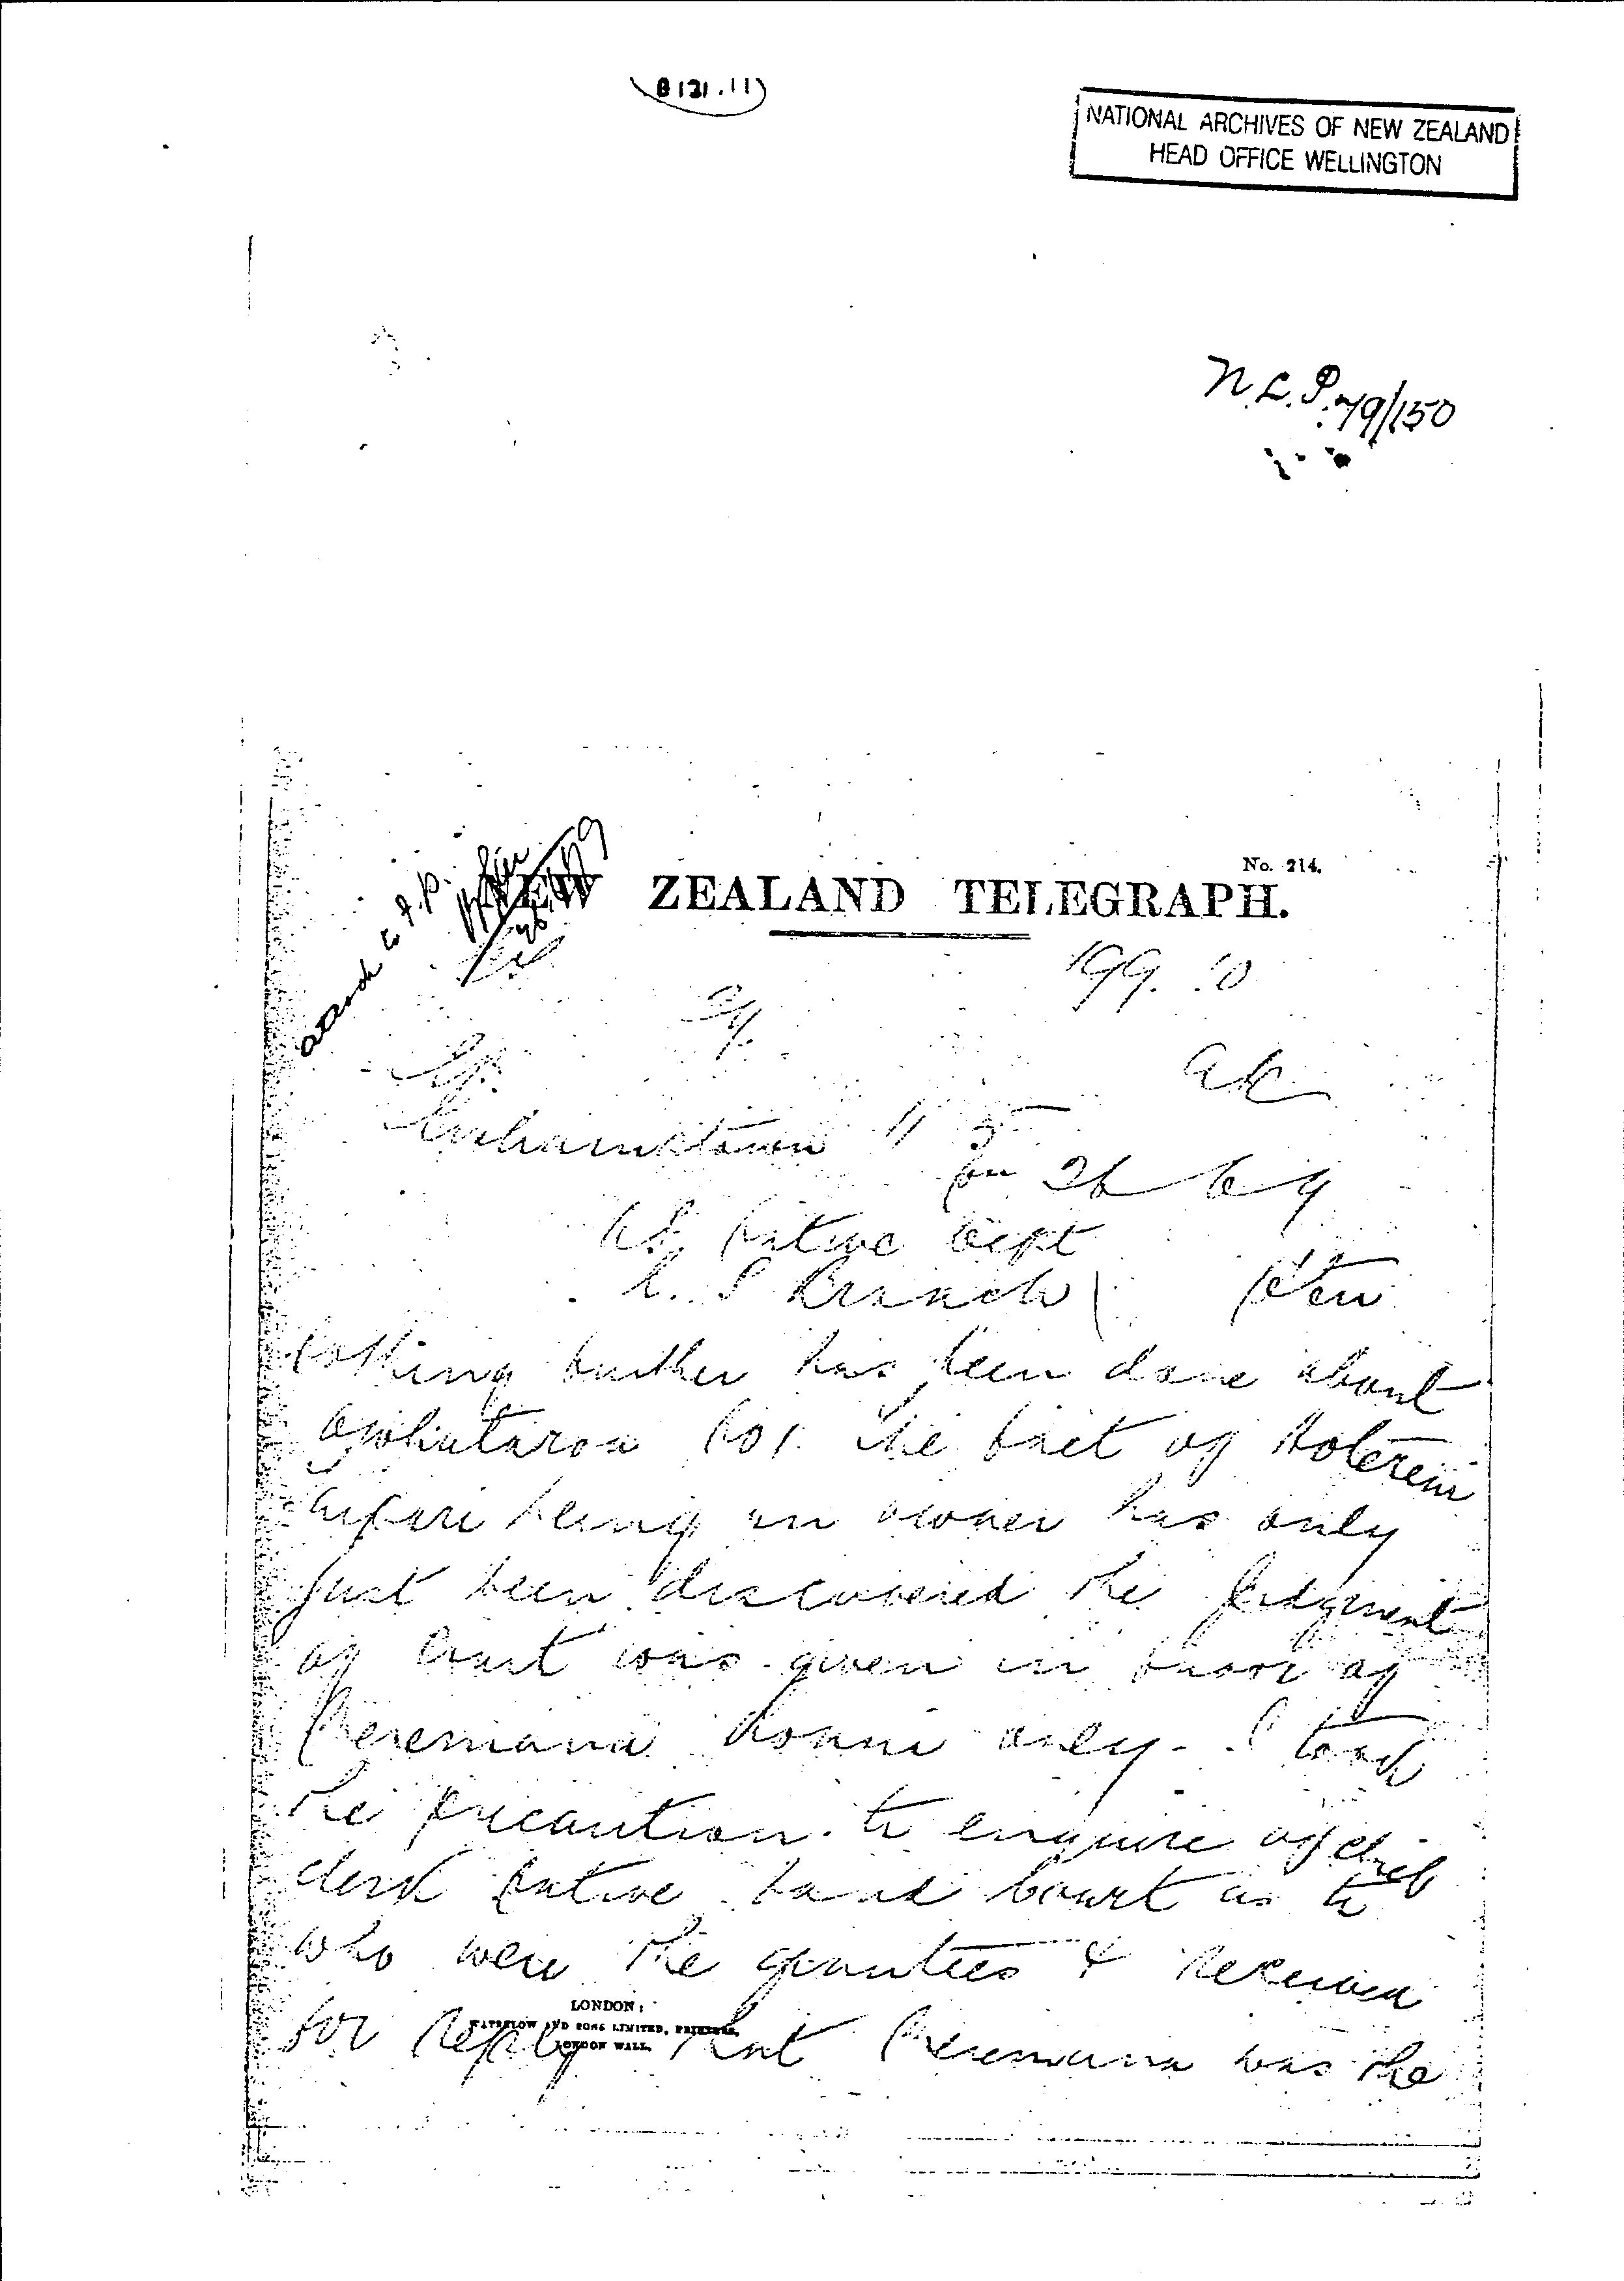 B 121.11
NATIONAL ARCHIVES OF NEW ZEALAND
HEAD OFFICE WELLINGTON
N.L.P. 79/150
No. 214.
NEW ZEALAND TELEGRAPH.
attach to
199.
Grahamstown 11 5
26
US Native Dept
L. P Branch
Nothing further has been done about
Owhataroa No 1. The fact of Hotereni
being an owner has only
just been discovered the judgment
of Court was given in favor of
Meremana Konui only. I took
the precaution to enquire of chief
clerk Native Land Court as to
who were the grantees & received
LONDON:
WATERLOW AND SONS LIMITED, PRINTERS,
LONDON WALL.
for reply that Meremana was the